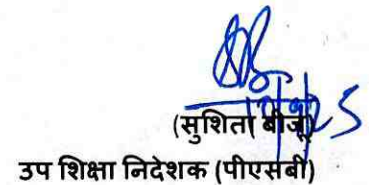 (सुशिता बीजू)
उप शिक्षा निदेशक (पीएसबी)